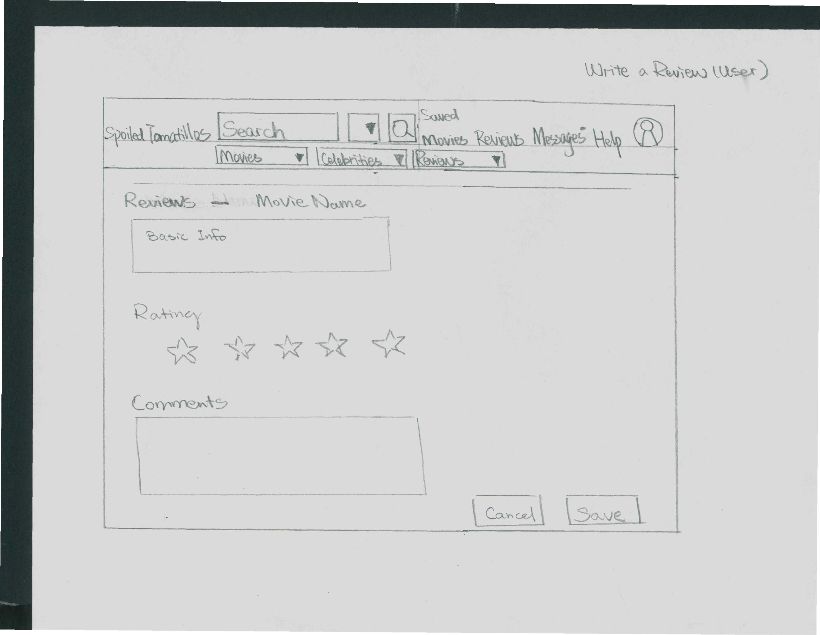 Write a Review (User)
Saved
Spoiled Tomatillos Search Movies Reviews Messages Help
Movies Celebrities Reviews
Reviews — Movie Name
Basic Info
Rating
Comments
Cancel Save